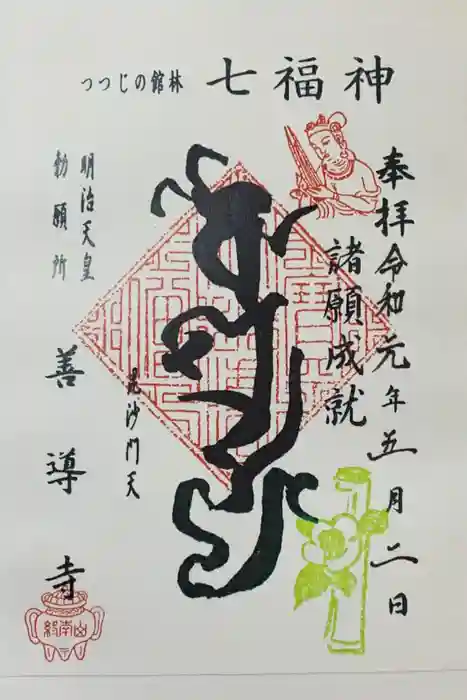 つつじの館林 七福神
奉拝 令和元年五月二日
諸願成就
毘沙門天
明治天皇
勅願所
善導寺
終南山